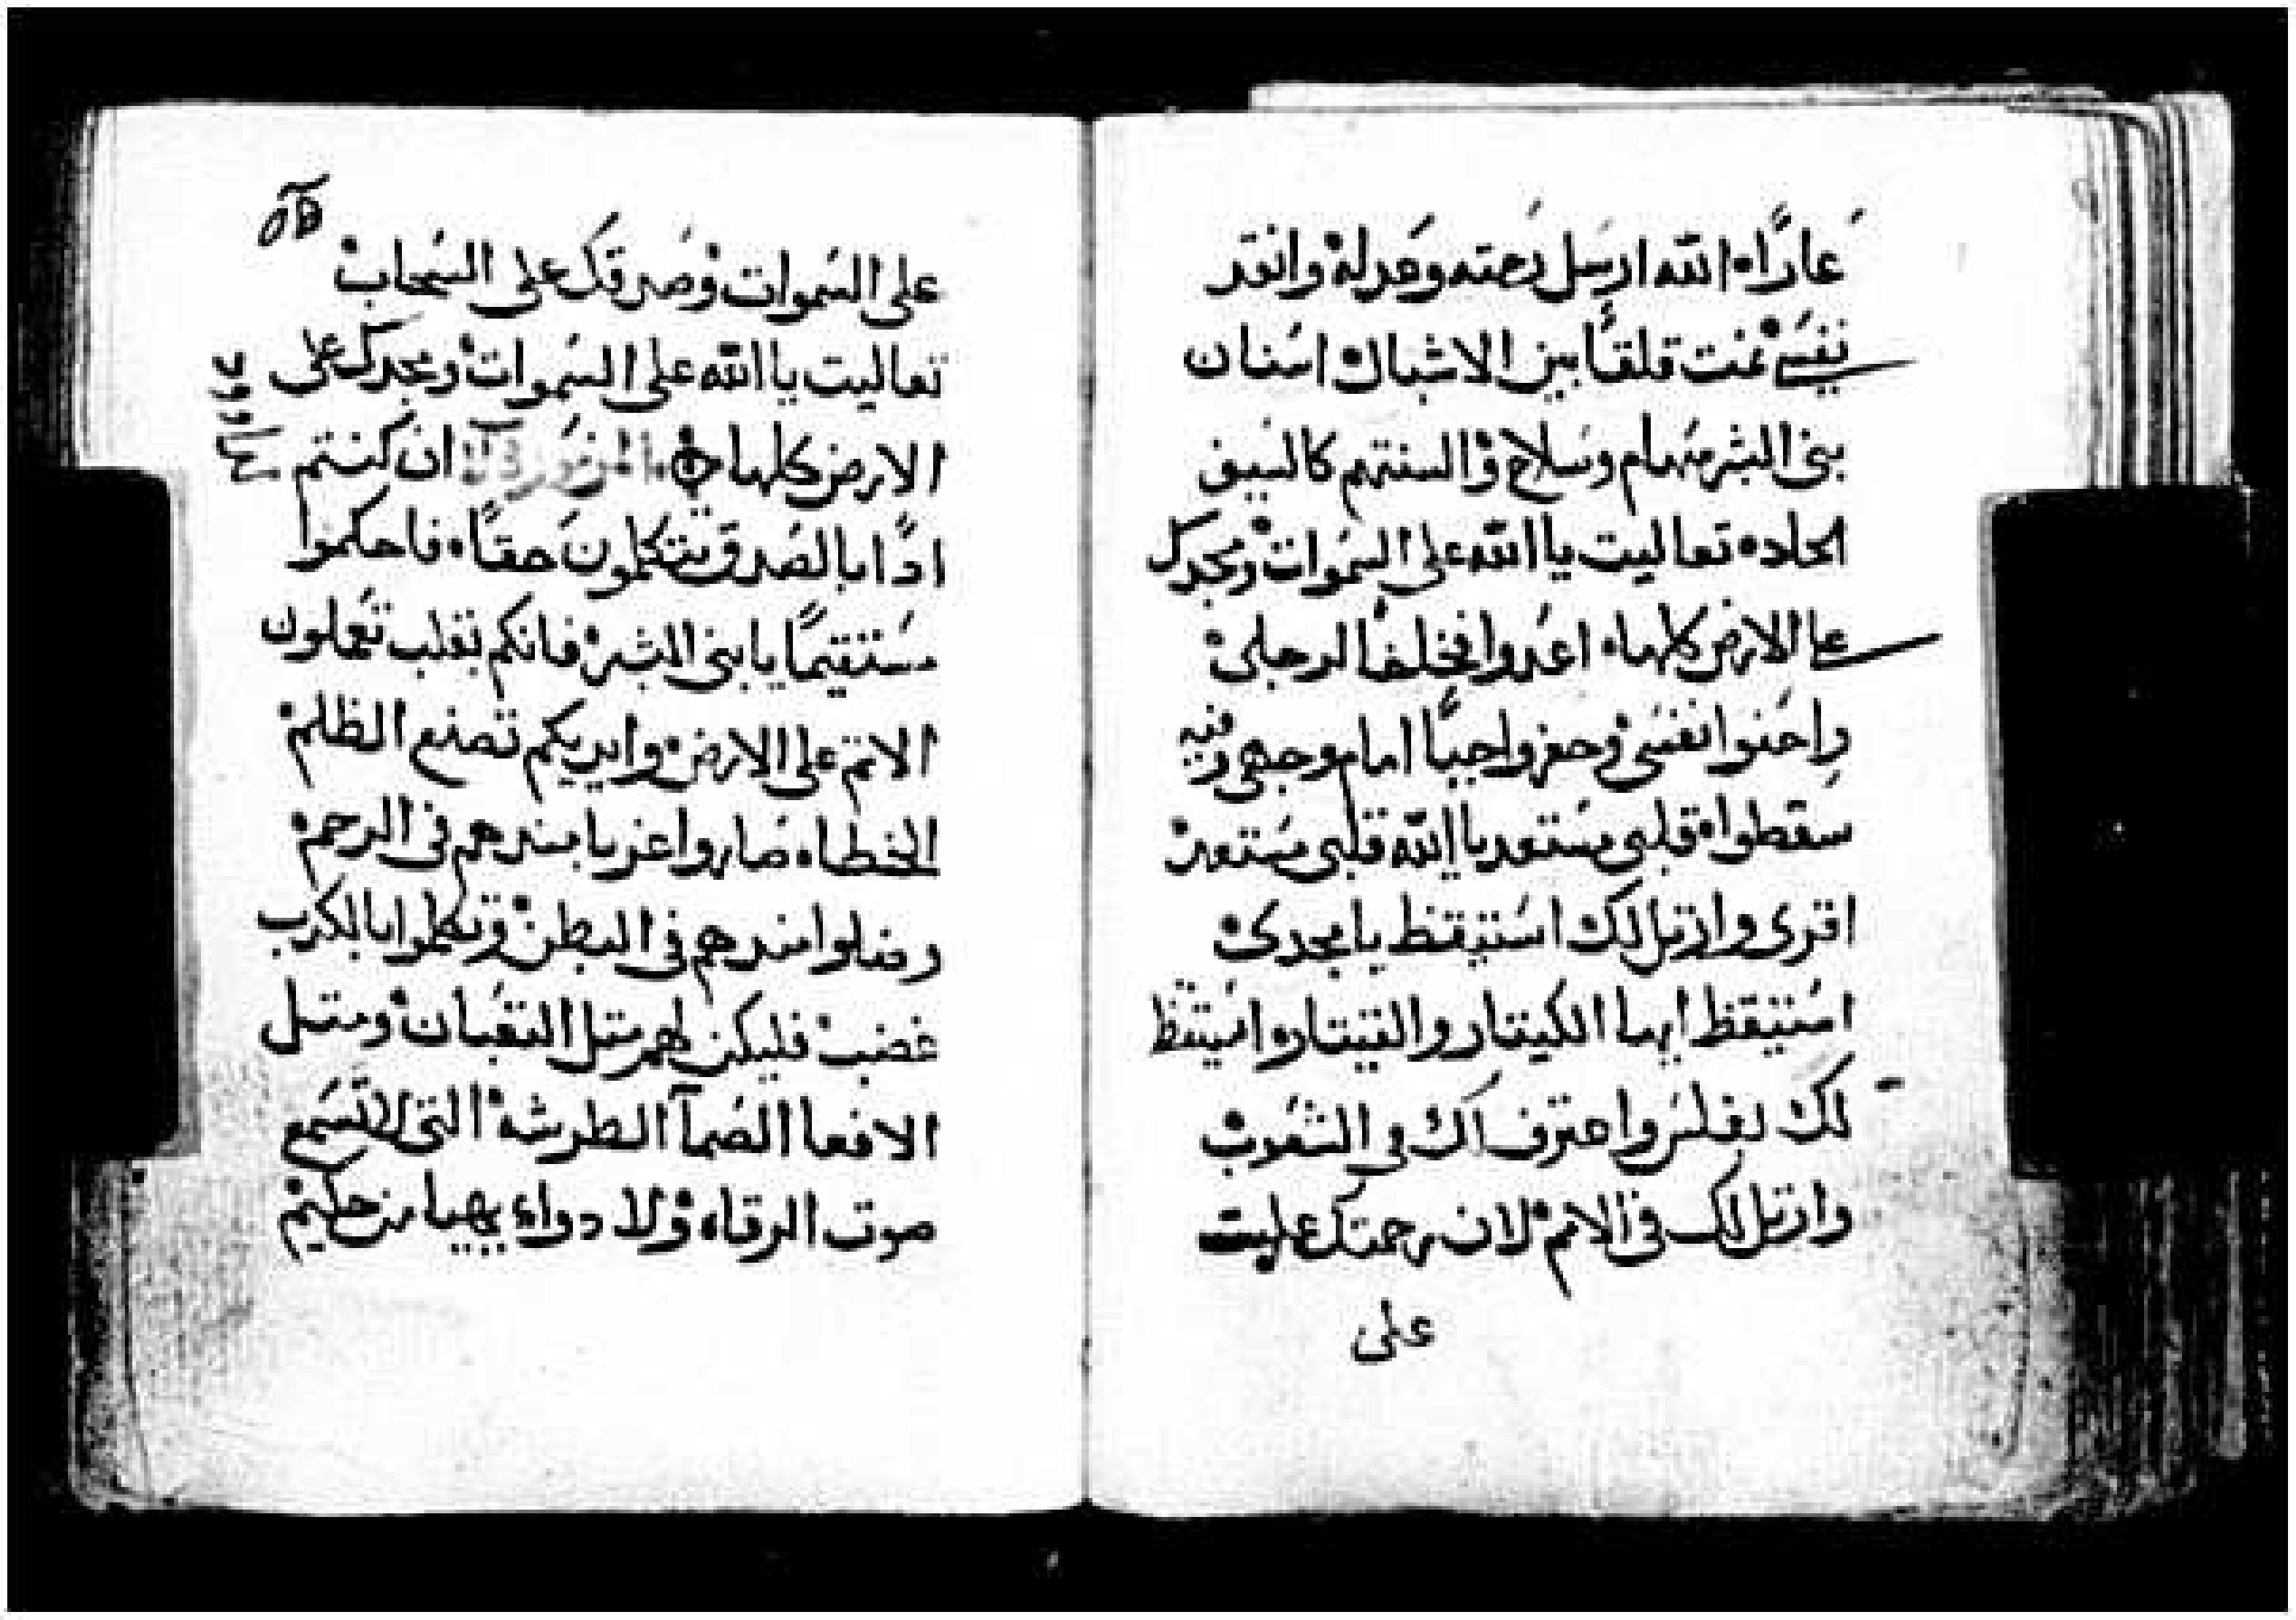 عارًا. الله ارسل رحمته وعدله وانقد
نفسي نمت قلقًا بين الاشبال اسنان
بني البشر سهام وسلاح والسنتهم كالسيف
الحاده تعاليت يا الله على السموات ومجدك
على الارض كلها. اعدوا فخلفًا لرجلي
راحنوا نفسي وحفروا جبًا امام وجهي وفيه
سقطوا. قلبي مستعد يا الله قلبي مستعد
اقرى وارتل لك استيقظ يا مجدي
استيقظ ايها الكيتار والقيتار واستيقظ
لك بغلس واعترف لك في الشعوب
وارتل لك في الامم لان رحمتك عليت
على
على السموات وصدقك على السحاب
تعاليت يا الله على السموات ومجدك على
الارض كلها المزمور ان كنتم
ادًا بالصدق تتكلمون حقًا. فاحكموا
مستقيمًا يا بني البشر فانكم بقلب تعملون
الاتم على الارض وايديكم تصنع الظلم
الخطاه صاروا عزبا مندهم في الرحم
وضلوا مندهم في البطن وتكلموا بالكذب
غضب فليكن لهم متل التعبان ومتل
الافعا الصمآ الطرشه التي لا تسمع
صوت الرقاه ولا دواء يهيا من حكيم